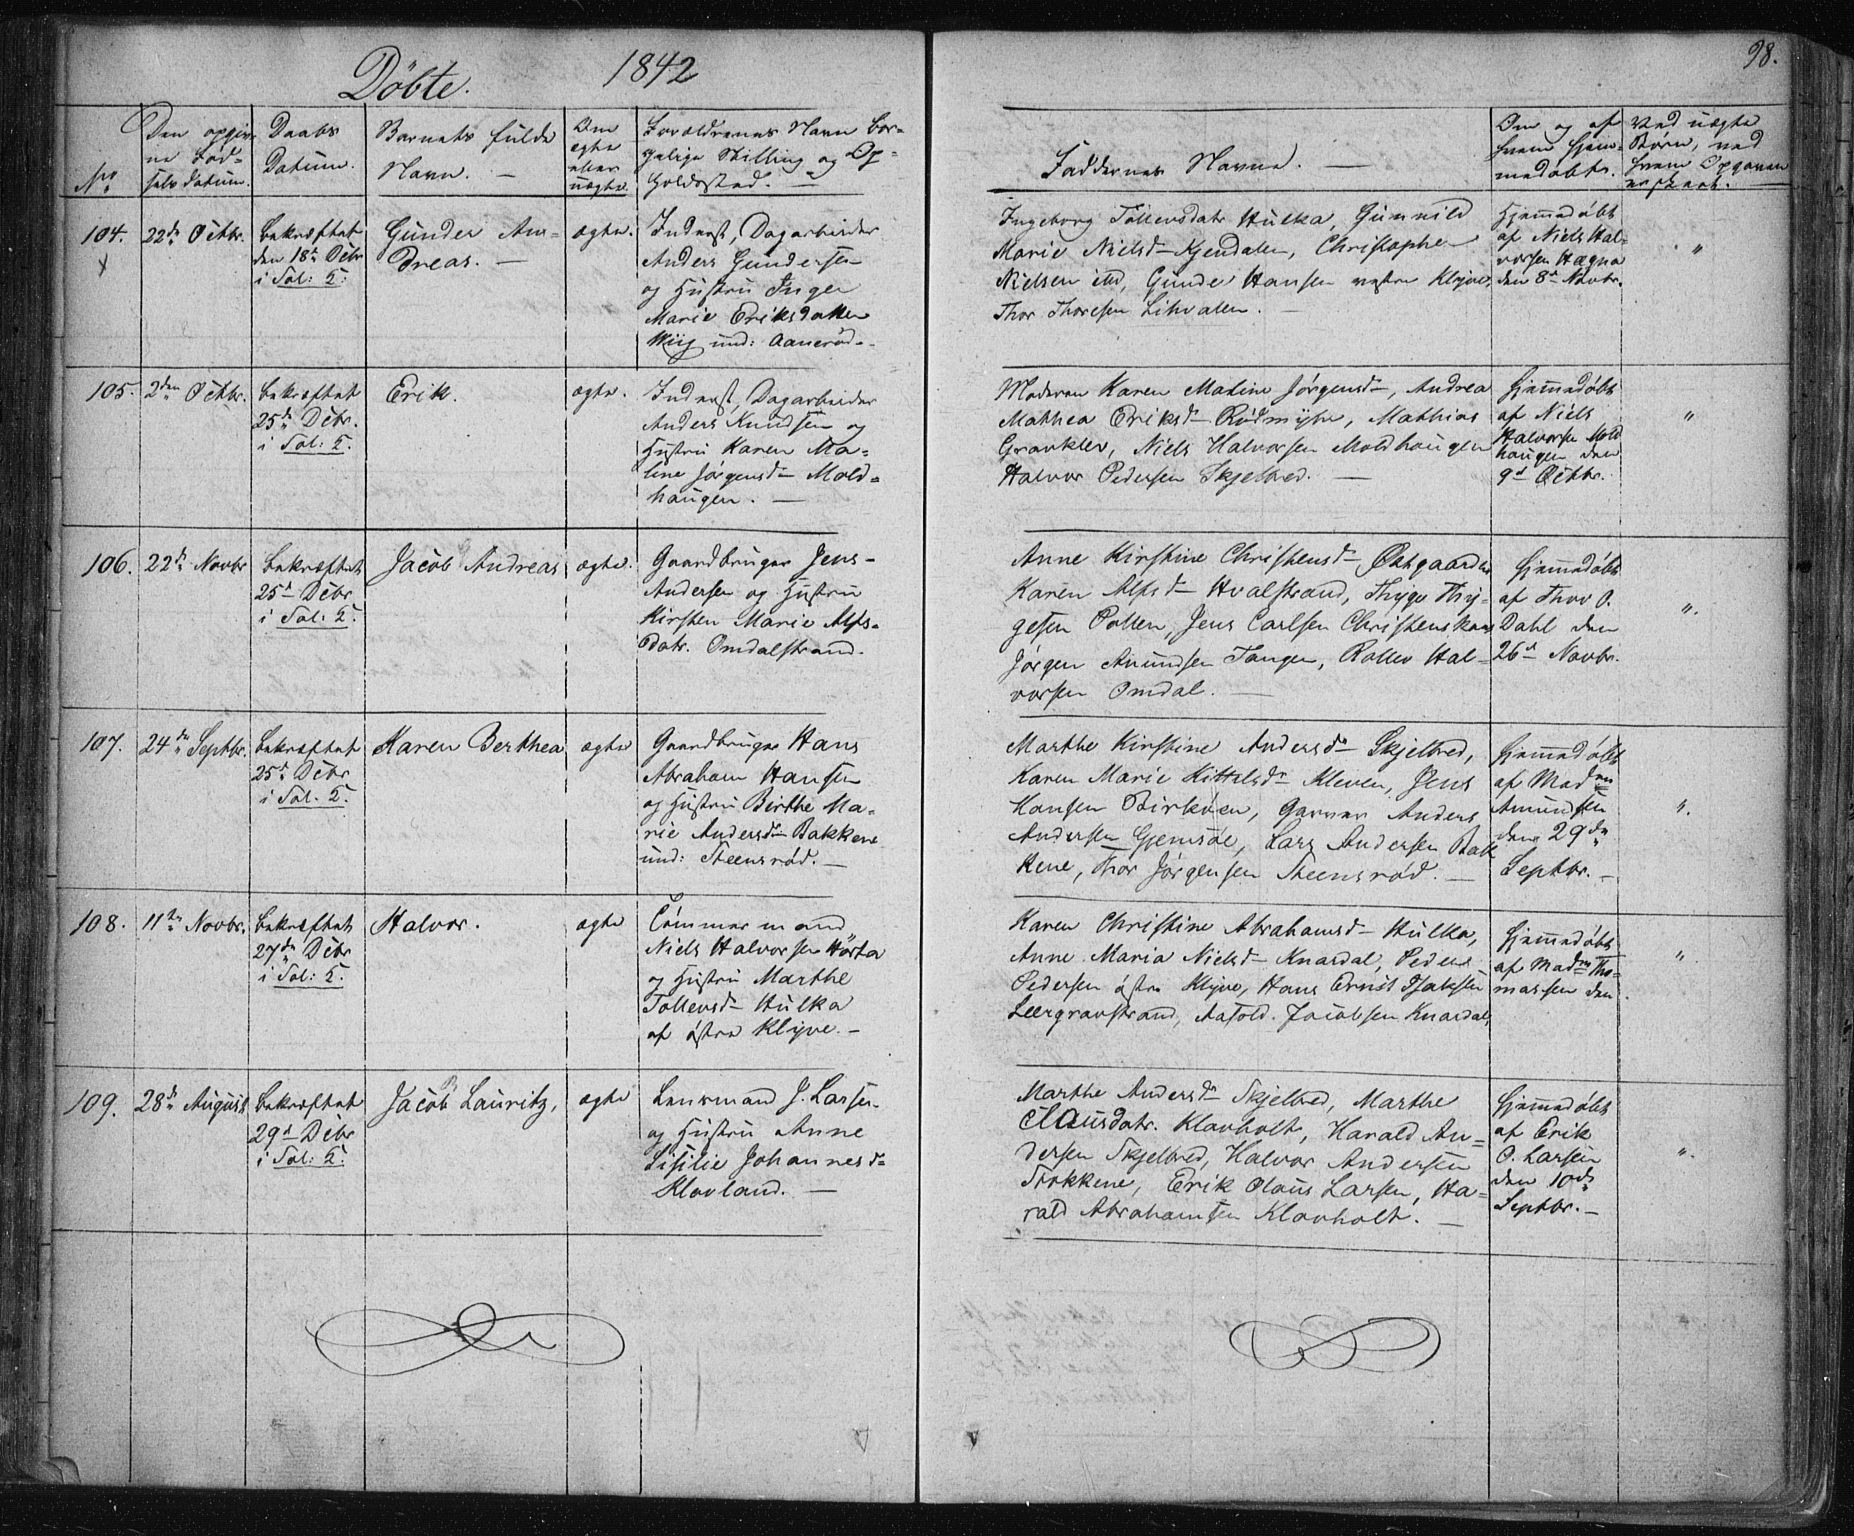 98.
Döbte. 1842
No
Den opgiv-
ne Fød-
selsdatum.
Daabs
Datum.
Barnets fulde
Navn. —
Om
ægte
eller
uægte.
Forældrenes Navn bor-
gelige Stilling og Op-
holdssted. —
Faddernes Navne. —
Om og af
hvem hjem-
medøbt.
Ved uægte
Børn, ved
hvem Opgaven
er skeet.
104.
22de Octbr.
bekræftet
den 18de Debr
i Sol: K:
Gunder An-
dreas. —
ægte.
Inderst, Dagarbeider
Anders Gundersen
og Hustru Inger
Marie Eriksdatter
Wiig und: Aanerød.-
Ingeborg Tollevsdatr Hulka, Gunnild
Marie Nielsd- Kjendalen, Christopher
Nielsen itd, Gunder Hansen vestre Klyve,
Thor Thoresen Lihvalen. —
Hjemmedøbt
af Niels Hal-
vorsen Hægna
den 8de Novbr.
"
105.
2den Octbr.
bekræftet
25de Debr.
i Sol: K.
Erik.
ægte.
Inderst, Dagarbeider
Anders Knudsen og
Hustru Karen Ma-
line Jørgensd- Mold-
haugen. —
Moderen Karen Maline Jørgensd-, Andrea
Mathea Eriksd- Rødmyhr, Mathias
Gravklev, Niels Halvorsen Moldhaugen
Halvor Pedersen Skjelbred. —
hjemmedøbt
af Niels
Halvorsen Mold
haugen den
9d Octbr.
"
106.
22de Novbr
bekræftet
25d Debr
i Sol: K.
Jacob Andreas
ægte.
Gaardbruger Jens
Andersen og Hustru
Kirsten Marie Alfs-
datr. Omdalstrand.
Anne Kirstine Christensd- Østgaarden
Karen Alfsd- Hvalstrand, Thyge Thy-
gesen Pollen, Jens Carlsen Christenskaas
Jørgen Amundsen Tangen, Rollev Hal-
vorsen Omdal. —
hjemmedøbt
af Thov O.
Dahl den
26d Novbr.
".
107.
24de Septbr.
bekræftet
25d Debr
i Sol. K.
Maren Berthea
ægte
Gaardbruger Hans
Abraham Hansen
og Hustru Birthe Ma-
rie Andersd- Bakkene
und: Steensrød. —
Marthe Kirstine Andersd- Skjelbred,
Karen Marie Kittelsd- Kleven, Jens
Hansen Birkoen, Garver Anders
Andersen Gjemsøe, Lars Andersen Bak
kene, Thor Jørgensen Steensrød. —
hjemmedøbt
af Madm
Amundsen
den 29de
Septbr. —
".
108.
11te Novbr.
bekræftet
27de Debr
i Sol: K.
Halvor.
ægte
Tömmermand
Niels Halvorsen Hörta
og Hustru Marthe
Tollevsd- Hulka
af østre Klyve. —
Karen Christine Abrahamsd- Hulka,
Anne Maria Nielsd- Knardal, Peder
Pedersen østre Klyve, Hans Ernst Isaksen
Leergravstrand, Aasold Jacobsen Knardal,
hjemmedøbt
af Madm Tho-
massen den
".
109.
28de August
bekræftet
29d Debr
i Sol: K.
Jacob Lauritz,
ægte
Lensmand J. Larsen
og Hustru Anne
Sisilie Johannesd-
Klovland. —
Marthe Andersd- Skjelbred, Marthe
Clausdatr. Klovholt, Harald An-
dersen Skjelbred, Halvor Andersen
Stokkene, Erik Olaus Larsen, Ha-
rald Abrahamsen Klovholt. —
hjemmedøbt
af Erik
O. Larsen
den 10de
Septbr. —
".